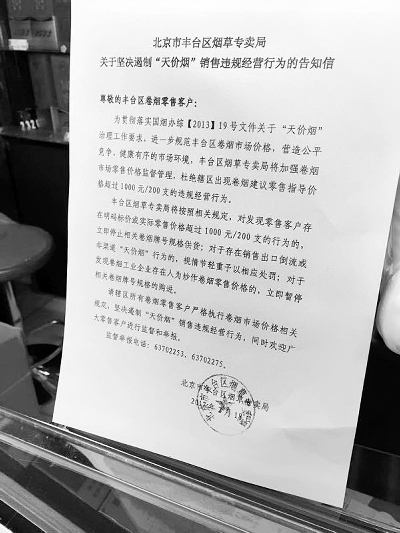 北京市丰台区烟草专卖局
关于坚决遏制“天价烟”销售违规经营行为的告知信
尊敬的丰台区卷烟零售客户：
为贯彻落实国烟办综【2013】19号文件关于“天价烟”
治理工作要求，进一步规范丰台区卷烟市场价格，营造公平
竞争、健康有序的市场环境，丰台区烟草专卖局将加强卷烟
市场零售价格监督管理，杜绝辖区出现卷烟建议零售指导价
格超过1000元/200支的违规经营行为。
丰台区烟草专卖局将按照相关规定，对发现零售客户存
在明码标价或实际零售价格超过1000元/200支的行为的，
立即停止相关卷烟牌号规格供货；对于存在销售出口倒流或
非渠道“天价烟”行为的，视情节轻重予以相应处罚；对于
发现卷烟工业企业存在人为炒作卷烟零售价格的，立即暂停
相关卷烟牌号规格的购进。
请辖区所有卷烟零售客户严格执行卷烟市场价格相关
规定，坚决遏制“天价烟”销售违规经营行为，同时欢迎广
大零售客户进行监督和举报。
监督举报电话：63702253、63702275。
北京市丰台区烟草专卖局